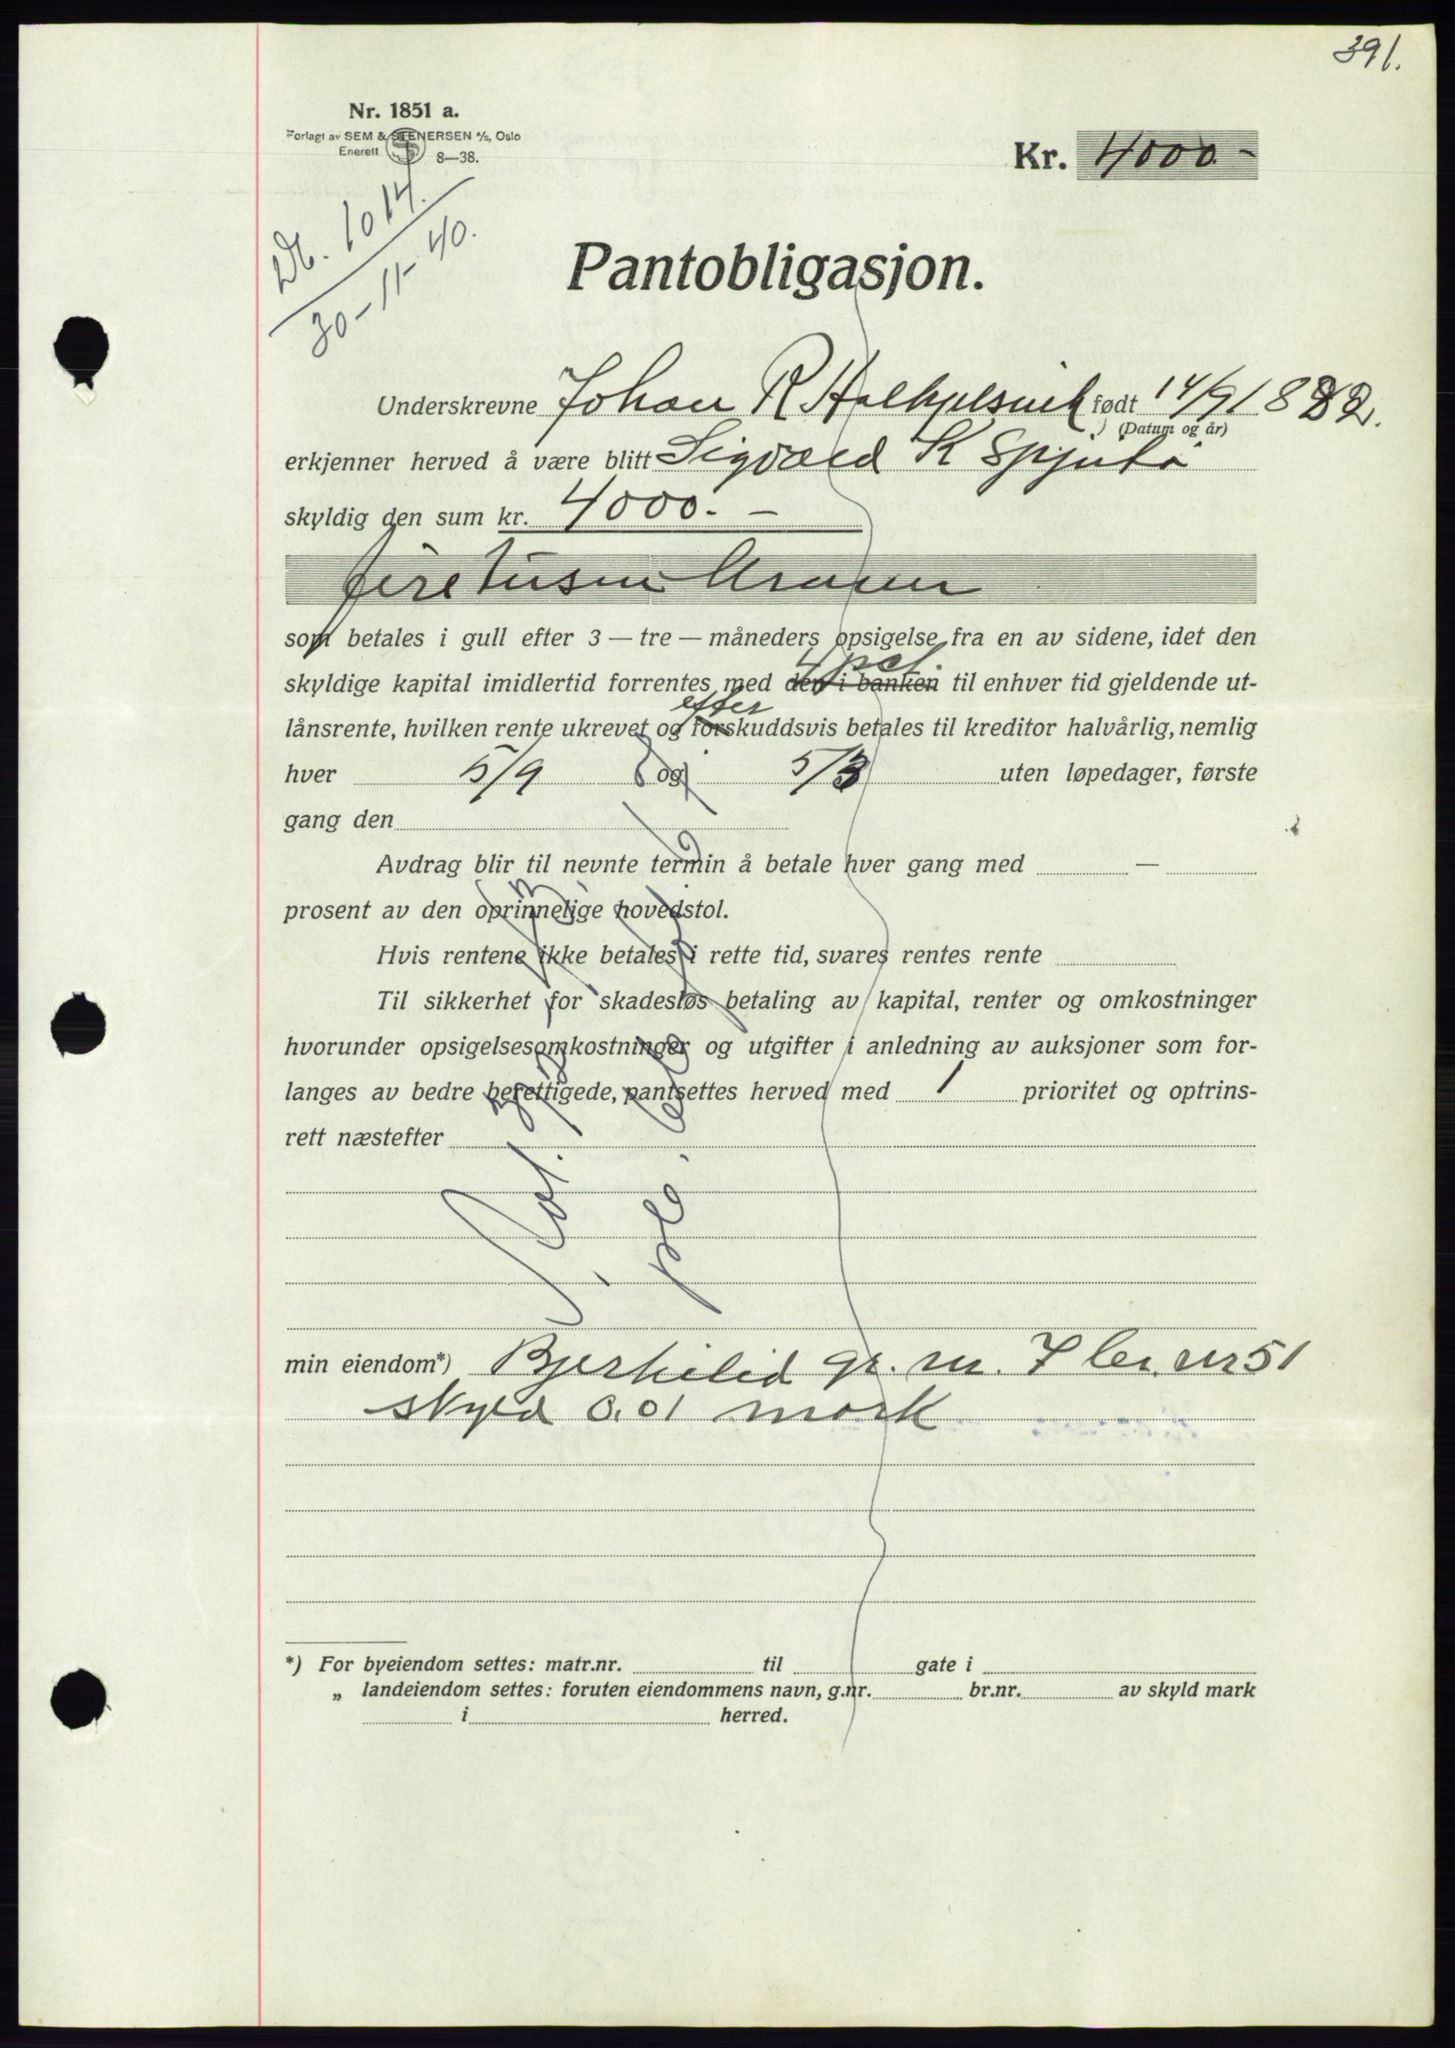 391.
Nr. 1851 a.
Forlagt av SEM & STENERSEN A/S, Oslo
Enerett 8—38.
Kr. 4000.-
Db. 1014.
30-11-40.
Pantobligasjon.
Underskrevne Johan R født 14/9 1882.
(Datum og år)
erkjenner herved å være blitt Sigvald K Spjutø
skyldig den sum kr. 4000.-
firetusen kroner
som betales i gull efter 3 — tre — måneders opsigelse fra en av sidene, idet den
4 pct.
skyldige kapital imidlertid forrentes med den i banken til enhver tid gjeldende ut-
efter
lånsrente, hvilken rente ukrevet og forskuddsvis betales til kreditor halvårlig, nemlig
hver 5/9 og 5/3 uten løpedager, første
gang den
Avdrag blir til nevnte termin å betale hver gang med —
prosent av den oprinnelige hovedstol.
Hvis rentene ikke betales i rette tid, svares rentes rente
Til sikkerhet for skadesløs betaling av kapital, renter og omkostninger
hvorunder opsigelsesomkostninger og utgifter i anledning av auksjoner som for-
langes av bedre berettigede, pantsettes herved med 1 prioritet og optrins-
rett næstefter
min eiendom*) Bjerkelid gr. nr. 7 br. nr 51
skyld 0.01 mark
*) For byeiendom settes: matr.nr. til gate i
„ landeiendom settes: foruten eiendommens navn, g.nr. br.nr. av skyld mark
i herred.